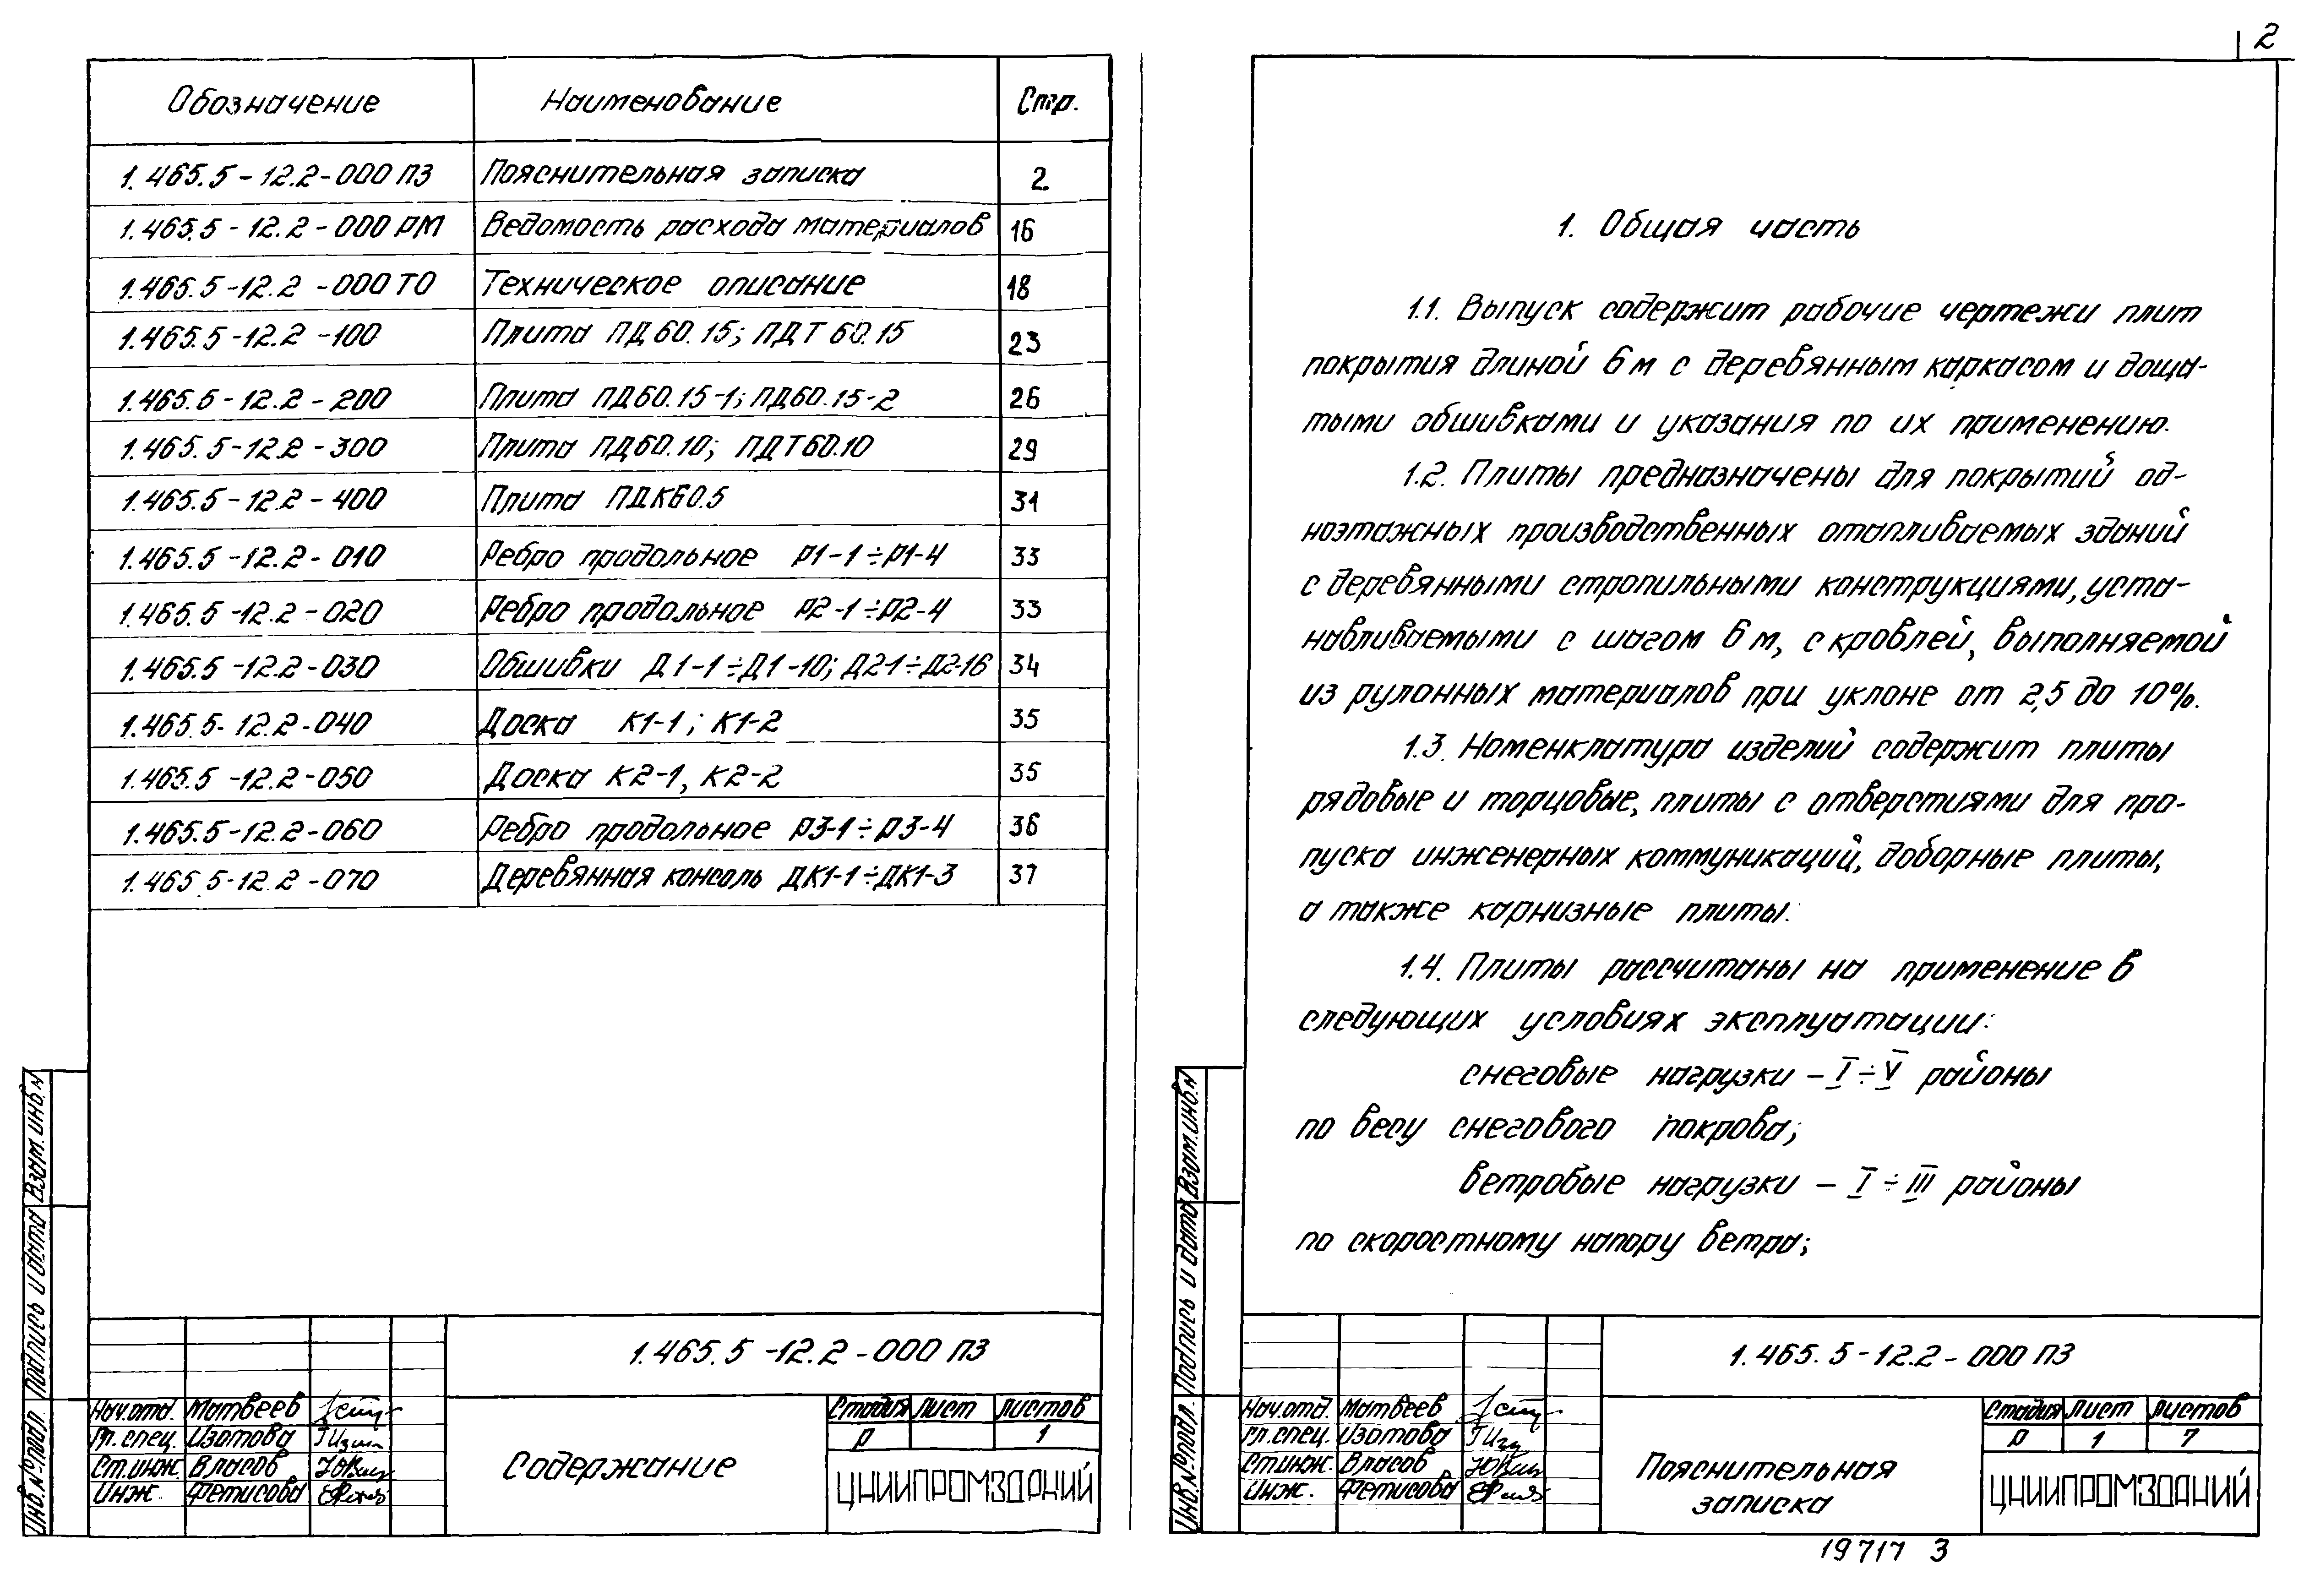 Обозначение Наименование Стр.
1.465.5-12.2-000 ПЗ Пояснительная записка 2
1.465.5-12.2-000 РМ Ведомость расхода материалов 16
1.465.5-12.2-000 ТО Техническое описание 18
1.465.5-12.2-100 Плита ПД60.15; ПДТ60.15 23
1.465.5-12.2-200 Плита ПД60.15-1; ПД60.15-2 26
1.465.5-12.2-300 Плита ПД60.10; ПДТ60.10 29
1.465.5-12.2-400 Плита ПДК60.5 31
1.465.5-12.2-010 Ребро продольное Р1-1÷Р1-4 33
1.465.5-12.2-020 Ребро продольное Р2-1÷Р2-4 33
1.465.5-12.2-030 Обшивки Д1-1÷Д1-10; Д2-1÷Д2-16 34
1.465.5-12.2-040 Доска К1-1; К1-2 35
1.465.5-12.2-050 Доска К2-1, К2-2 35
1.465.5-12.2-060 Ребро продольное Р3-1÷Р3-4 36
1.465.5-12.2-070 Деревянная консоль ДК1-1÷ДК1-3 37
Взам.инв.N
Подпись и дата
Инв.№подл.
1.465.5-12.2-000 ПЗ
Нач.отд. Матвеев
Гл.спец. Изотова
Ст.инж. Власов
Инж. Фетисова
Содержание
Стадия Лист Листов
Р 1
ЦНИИПРОМЗДАНИЙ
2
1. Общая часть
1.1. Выпуск содержит рабочие чертежи плит
покрытия длиной 6 м с деревянным каркасом и доща-
тыми обшивками и указания по их применению.
1.2. Плиты предназначены для покрытий од-
ноэтажных производственных отапливаемых зданий
с деревянными стропильными конструкциями, уста-
навливаемыми с шагом 6 м, с кровлей, выполняемой
из рулонных материалов при уклоне от 2,5 до 10%.
1.3. Номенклатура изделий содержит плиты
рядовые и торцовые, плиты с отверстиями для про-
пуска инженерных коммуникаций, доборные плиты,
а также карнизные плиты.
1.4. Плиты рассчитаны на применение в
следующих условиях эксплуатации:
снеговые нагрузки – I÷V районы
по весу снегового покрова;
ветровые нагрузки – I÷III районы
по скоростному напору ветра;
Взам.инв.N
Подпись и дата
Инв.№подл.
1.465.5-12.2-000 ПЗ
Нач.отд. Матвеев
Гл.спец. Изотова
Ст.инж. Власов
Инж. Фетисова
Пояснительная
записка
Стадия Лист Листов
Р 1 7
ЦНИИПРОМЗДАНИЙ
19717 3